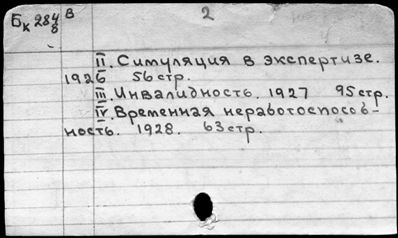 Бк 284/8 В
2
II. Симуляция в экспертизе.
1926 56 стр.
III. Инвалидность. 1927 95 стр.
IV. Временная неработоспособ-
ность. 1928. 63 стр.